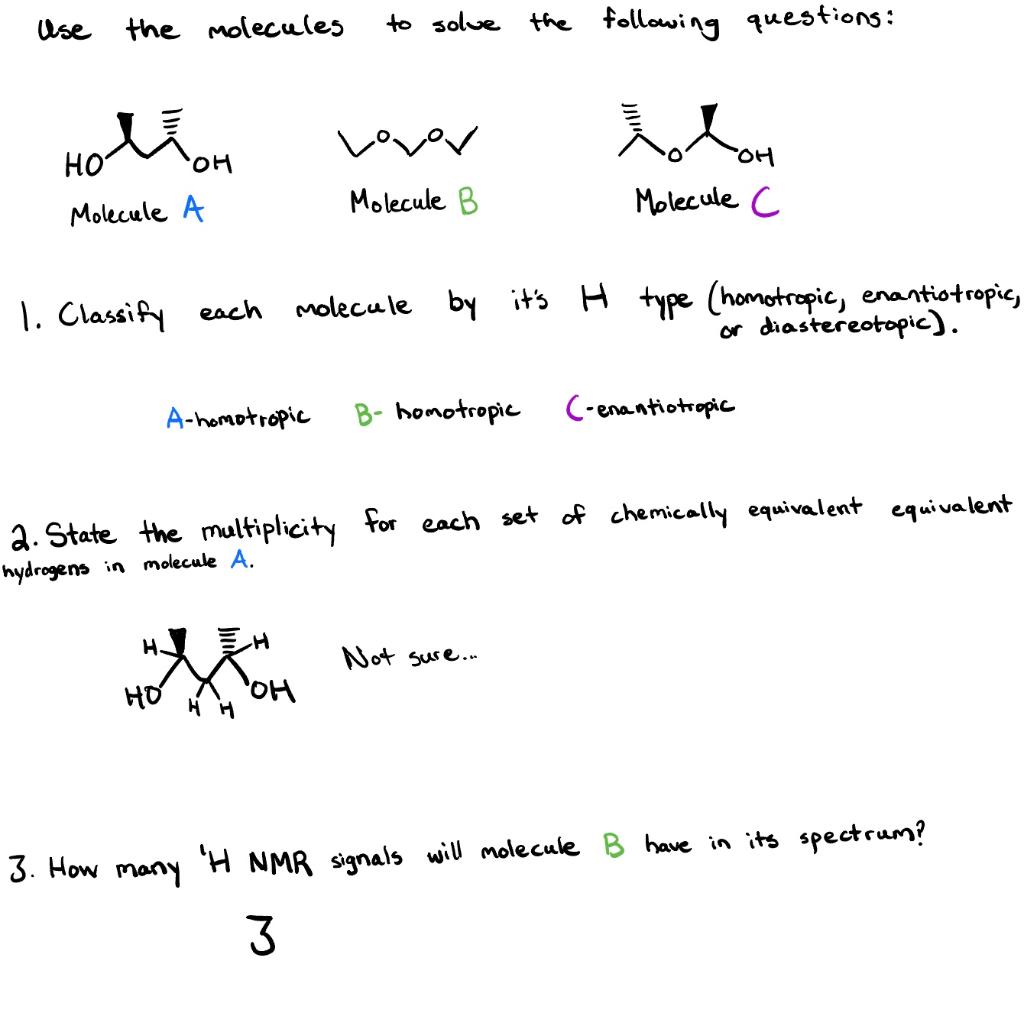 Use the molecules to solve the following questions:
HO OH
O O
O OH
Molecule A
Molecule B
Molecule C
1. Classify each molecule by it's H type (homotropic, enantiotropic,
or diastereotopic).
A-homotropic B- homotropic C-enantiotropic
2. State the multiplicity for each set of chemically equivalent equivalent
hydrogens in molecule A.
H H
HO H H OH
Not sure...
3. How many ¹H NMR signals will molecule B have in its spectrum?
3